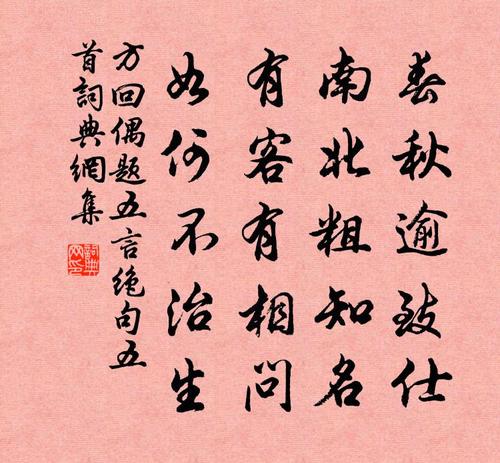 春秋逾致仕
南北粗知名
有客有相問
如何不治生
方回偶題五言絶句五
首詞典網集
詞典网印